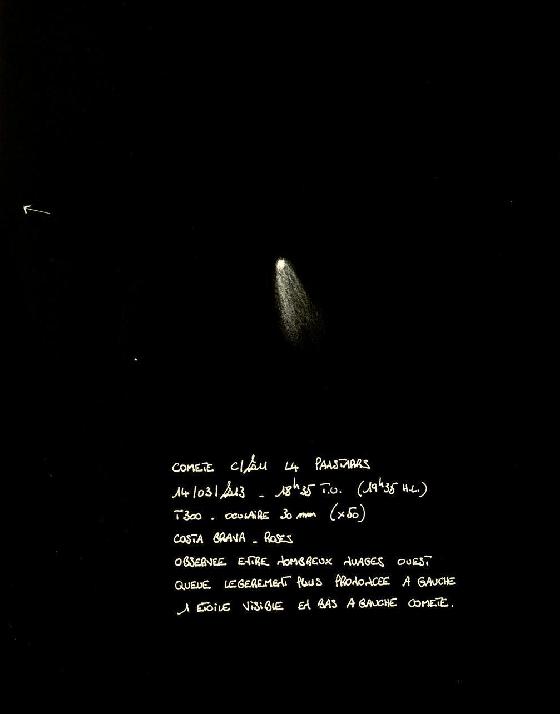 COMETE C/2011 L4 PANSTARRS
14/03/2013 - 18h35 T.U. (19h35 H.L.)
T300 - OCULAIRE 30 mm (x50)
COSTA BRAVA - ROSES
OBSERVEE ENTRE NOMBREUX NUAGES OUEST
QUEUE LEGEREMENT PLUS PRONONCEE A GAUCHE
1 ETOILE VISIBLE EN BAS A GAUCHE COMETE.